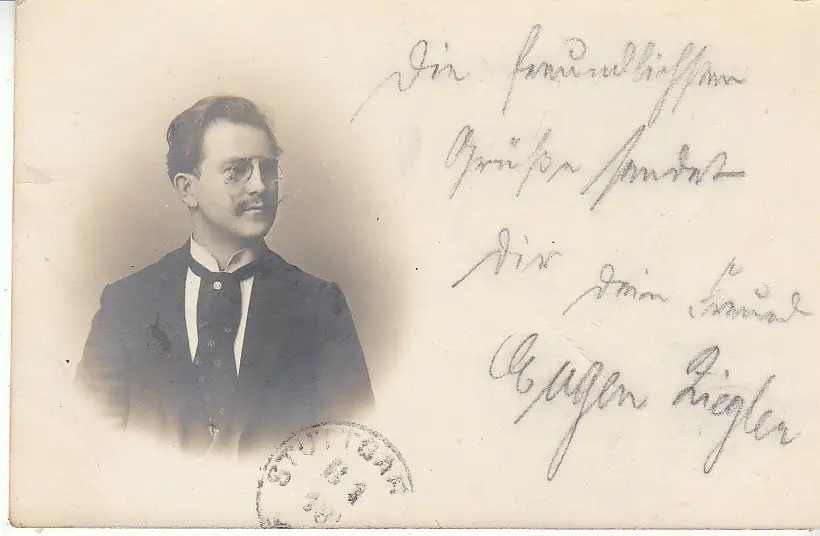 Die freundlichsten
Grüße sendet
Dir dein Freund
Eugen Ziegler
STUTTGART